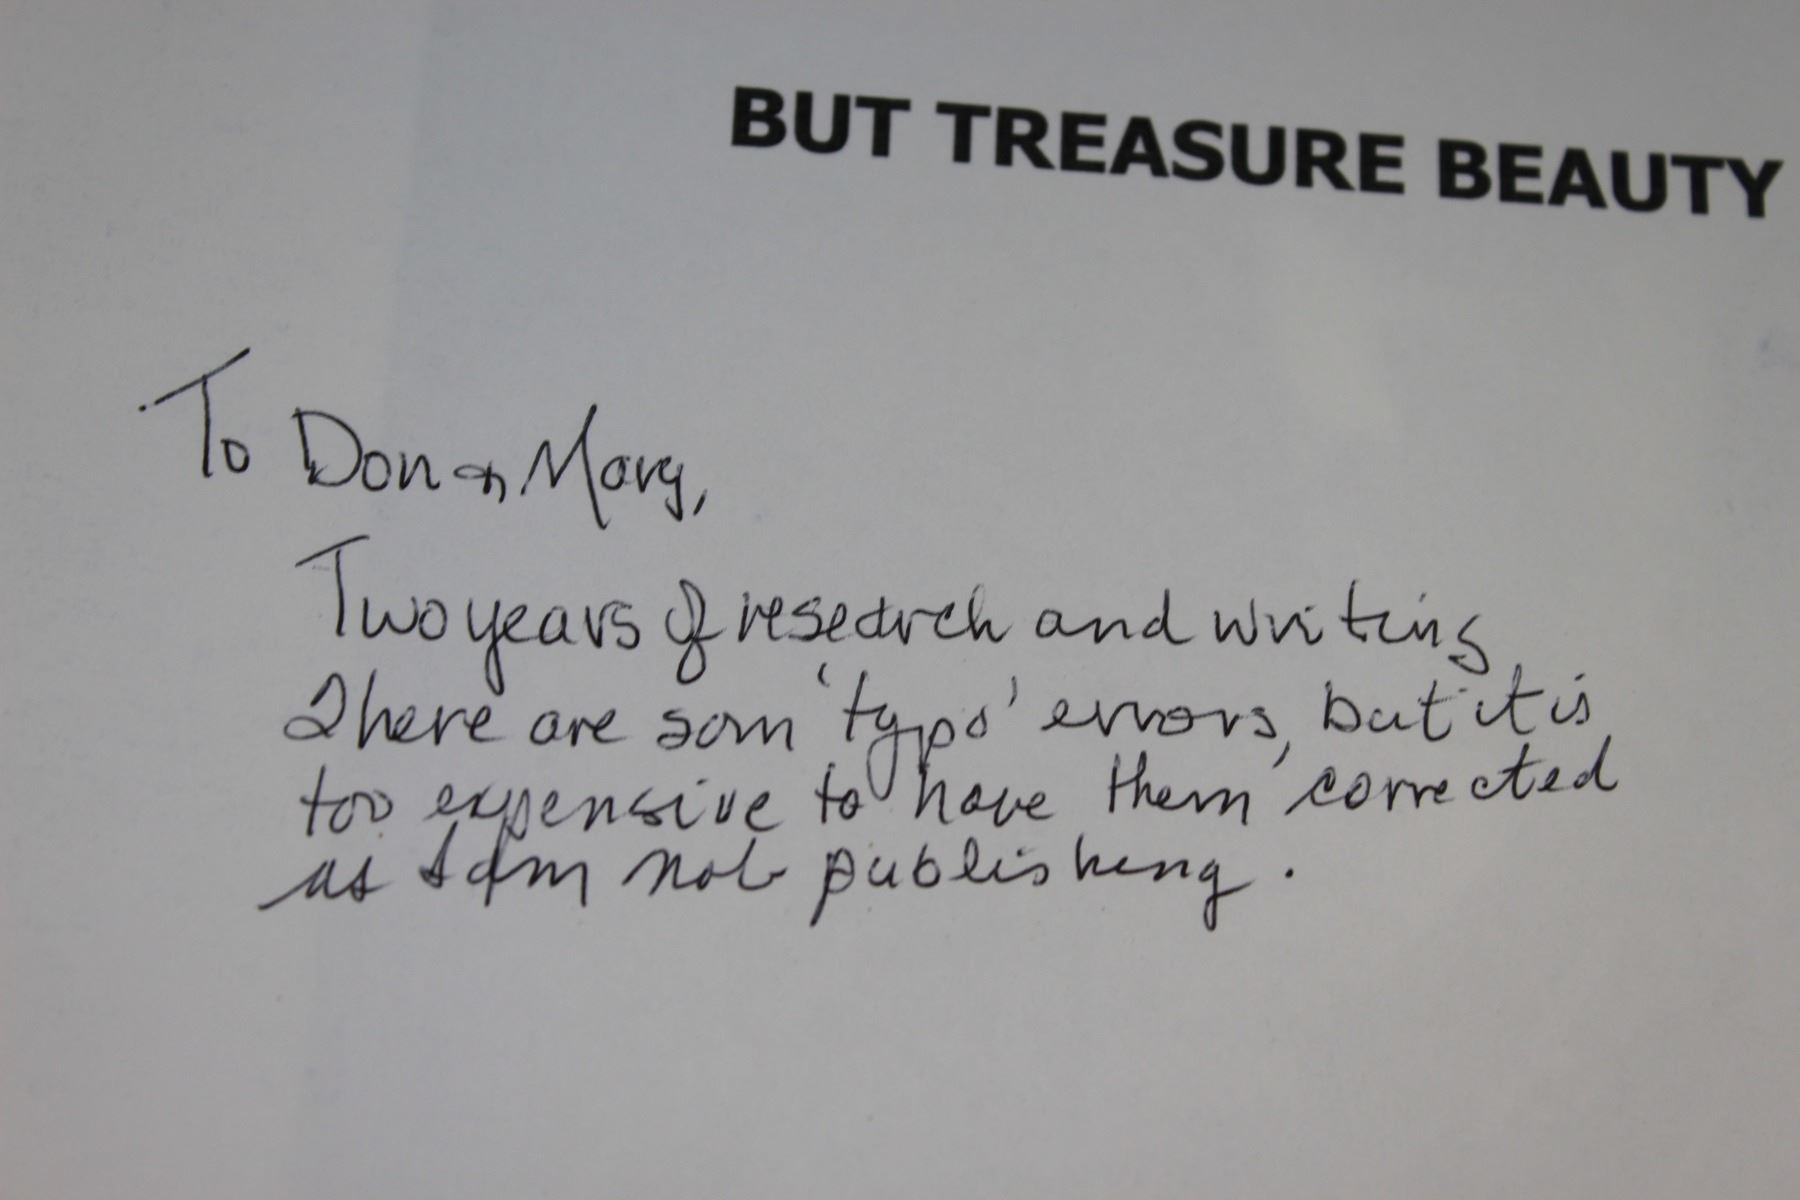 BUT TREASURE BEAUTY
To Don & Mary,
Two years of research and writing
There are som 'typo' errors, but it is
too expensive to have them corrected
as I am not publishing.